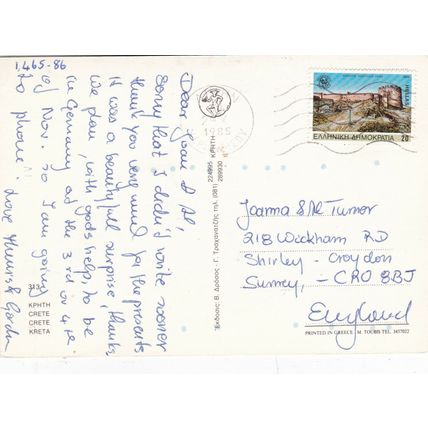 1,465-86
Dear Joan & Al,
Sorry that I didn't write sooner
thank you very much for the presents
It was a beautyfull surprise, thanks
we plan, with gods help, to be
in Germany at the 3rd or 4th
of Nov. so I am going
to phone
Love & Gordon
313
ΚΡΗΤΗ
CRETE
CRETE
KRETA
Εκδοσις: Β. Δρόσος - Γ. Τραχανατζής τηλ. (081) 224695 ΚΡΗΤΗ 289930
1985
HELLAS
ΕΛΛΗΝΙΚΗ ΔΗΜΟΚΡΑΤΙΑ 20
Joanna & Al Turner
218 Wickham RD
Shirley - Croydon
Surrey, - CRO 8BJ
England
PRINTED IN GREECE M. TOUBIS TEL. 3457022